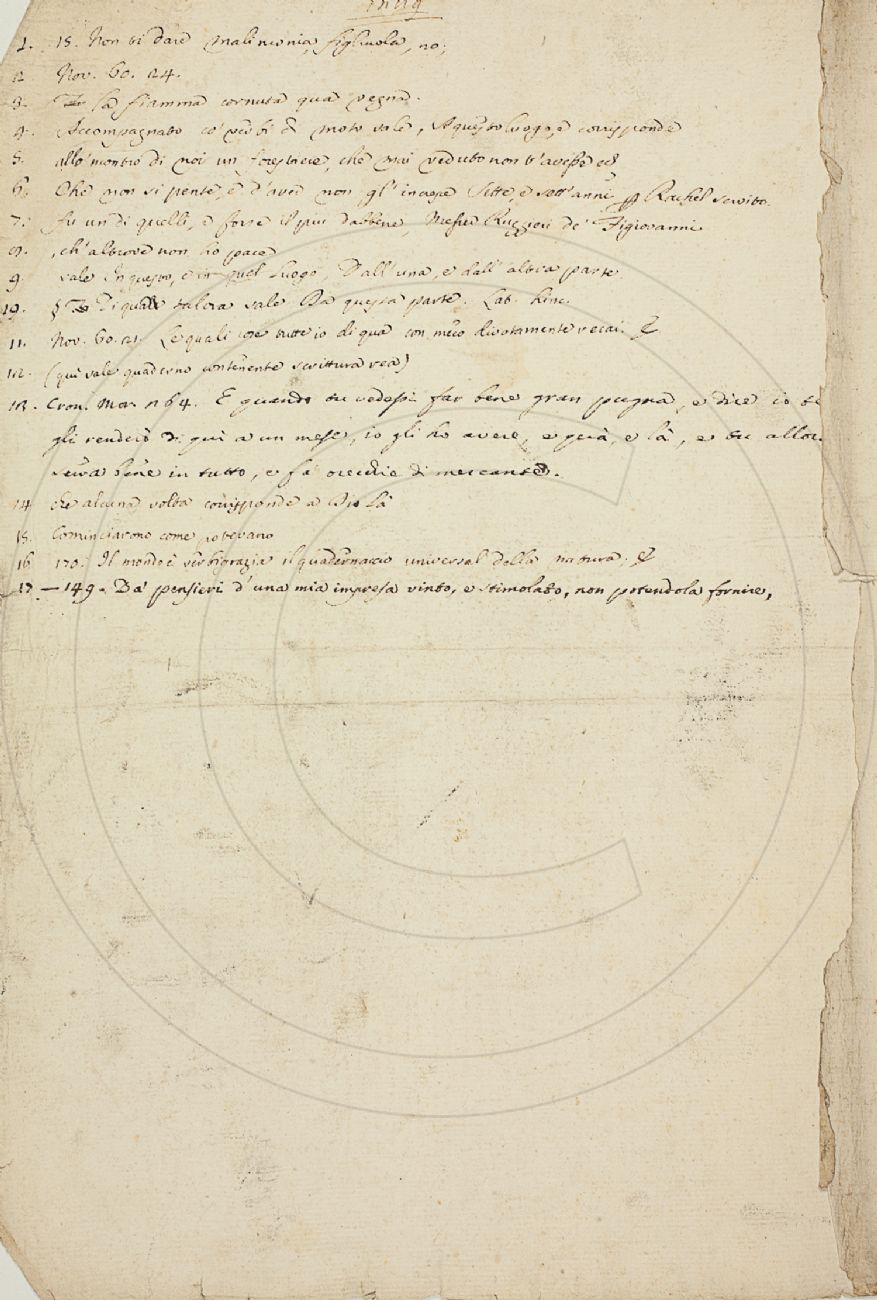 1. 15. Non ti dare malinconia, figliuola, no;
2 Nov. 60. 24.
3. la fiamma cornuta qua vegna.
4. Accompagnato co' verbi di moto vale, A questo luogo, e corrisponde
5. allo 'ncontro di noi un forestiere, che mai veduto non t'avesse ec
6. Che non si pente, e d'aver non gl'incresce Sette, e sett'anni Rachel servito.
7. fu un di quelli, e forse il più dabbene, Messer Ruggieri de' Figiovanni
8. , ch'altrove non ho pace
9. vale In questo, e in quel luogo, Dall'una, e dall'altra parte
10. § Di qua talora vale Da questa parte. Lat. hinc.
11. Nov. 60. 21. Le quali cose tutte io di qua con meco divotamente recai.
12. (qui vale quaderno contenente scrittura rea)
13. Cron. Mor. 264. E quando tu vedessi far bene gran pugna, e dire io te
gli renderò di qui a un mese, io gli ho avere, e qua, e là, e tu allor
serva bene in tutto, e fa orecchie di mercante.
14 che alcuna volta corrisponde a Di là
15. Cominciarono come potevano
16 170. Il mondo è verbigrazia il quadernaccio universal della natura.
17 — 149. Da' pensieri d'una mia impresa vinto, e stimolato, non potendola fornire,